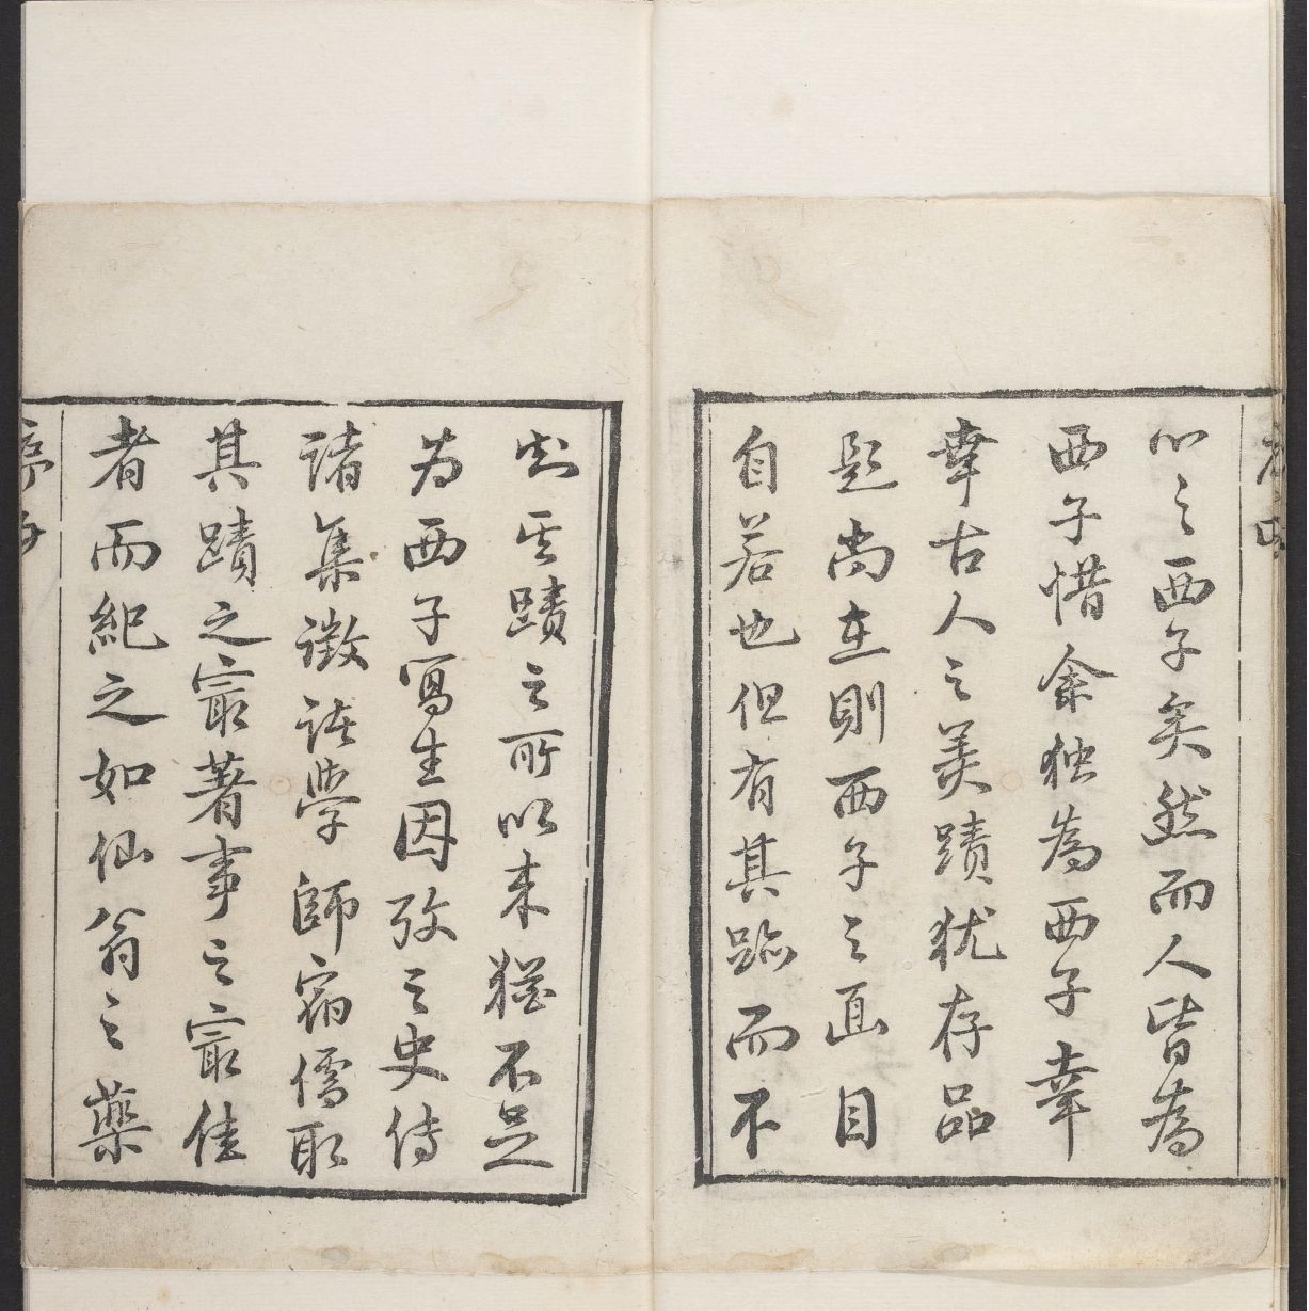 以之西子矣然而人皆為
西子惜余独為西子幸
幸古人之美蹟犹存品
題尚在則西子之面目
自若也但有其跡而不
知其蹟之所以来猶不足
为西子寫生因攷之史传
諸集徵諸學師宿儒取
其蹟之最著事之最佳
者而紀之如仙翁之藥